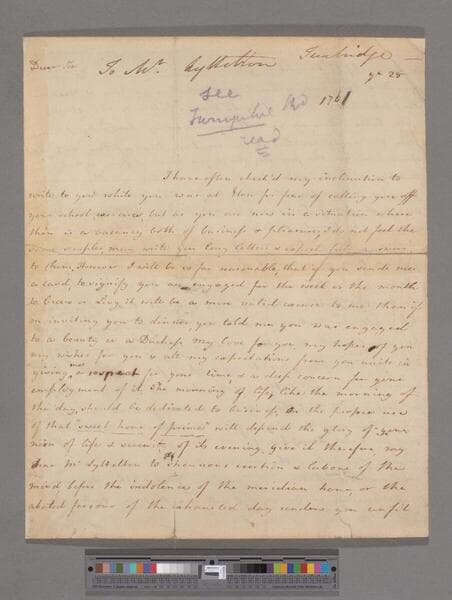 Dear Sir To Mr. Lyttelton Tunbridge
ye 28
see 1761
Turnpike Rd
read
I have often check'd my inclination to
write to you while you was at for fear of calling you off
your school exercises, but as you are now in a situation where
there is a vacancy both of business & pleasure, I do not feel the
same scruples, may write you long letters & expect long answers
to them, However I will be so far reasonable, that if you sends me
a card, to signify you are engaged for the week or the month
to Cicero or Livy, it will be a more valid excuse to me than if
in inviting you to dinner, you told me you was engaged
to a beauty or a Dutchess. My love for you my hopes of you
my wishes for you & all my expectations from you unite in
giving me respect for your time, & a deep concern for your
employment of it. The morning of life, like the morning of
the day, should be dedicated to business, On the proper use
of that sweet hour of prime will depend the glory of your
noon of life & serenity of its evening, give it therefore, my
dear Mr Lyttelton to strenuous exertion & labour of the
mind before the indolence of the meridian hour, or the
abated fervour of the exhausted day renders you unfit